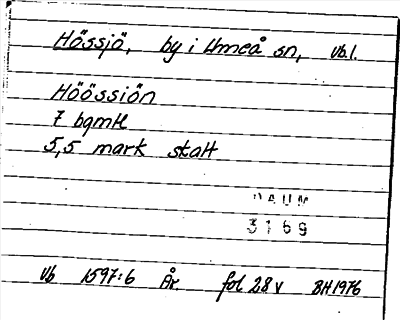 Hössjö, by i Umeå sn, Vb.l.
Höössiön
7 bgmtl
5,5 mark skatt
DAUM
3169
Vb 1597:6 År. fol 28 v BH 1976